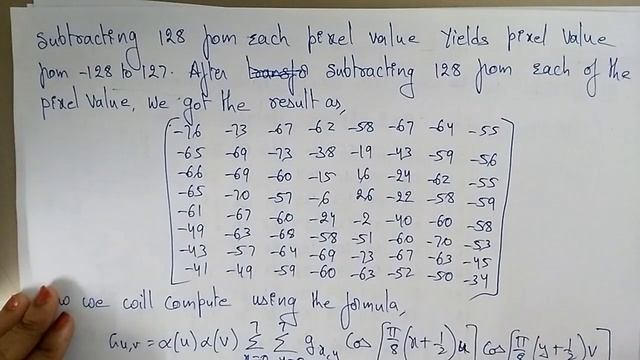 Subtracting 128 from each pixel value yields pixel value
from -128 to 127. After subtracting 128 from each of the
pixel value, we got the result as,
-76 -73 -67 -62 -58 -67 -64 -55
-65 -69 -73 -38 -19 -43 -59 -56
-66 -69 -60 -15 16 -24 -62 -55
-65 -70 -57 -6 26 -22 -58 -59
-61 -67 -60 -24 -2 -40 -60 -58
-49 -63 -68 -58 -51 -60 -70 -53
-43 -57 -64 -69 -73 -67 -63 -45
-41 -49 -59 -60 -63 -52 -50 -34
we will compute using the formula,
Gu,v = α(u) α(v) Σ Σ gx,y Cos [π/8 (x+1/2) u] Cos [π/8 (y+1/2) v]